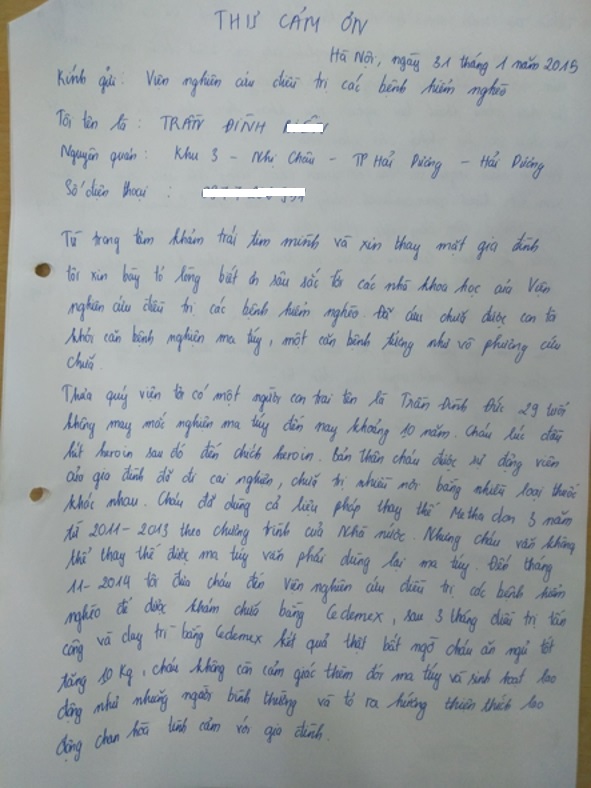 THƯ CẢM ƠN
Hà Nội, ngày 31 tháng 1 năm 2015
Kính gửi: Viện nghiên cứu điều trị các bệnh hiểm nghèo
Tôi tên là : TRẦN ĐÌNH
Nguyên quán: Khu 3 - Nhị Châu - TP Hải Dương - Hải Dương
Số điện thoại :
Từ trong tâm khảm trái tim mình và xin thay mặt gia đình
tôi xin bày tỏ lòng biết ơn sâu sắc tới các nhà khoa học của Viện
nghiên cứu điều trị các bệnh hiểm nghèo. Đã cứu chữa được con tôi
khỏi căn bệnh nghiện ma túy, một căn bệnh tưởng như vô phương cứu
chữa.
Thưa quý viện tôi có một người con trai tên là Trần Đình Đức 29 tuổi
không may mắc nghiện ma túy đến nay khoảng 10 năm. Cháu lúc đầu
hút heroin sau đó đến chích heroin. Bản thân cháu được sự động viên
của gia đình đã đi cai nghiện, chữa trị nhiều nơi bằng nhiều loại thuốc
khác nhau. Cháu đã dùng cả liệu pháp thay thế Metha don 3 năm
từ 2011-2013 theo chương trình của Nhà nước. Nhưng cháu vẫn không
thể thay thế được ma túy vẫn phải dùng lại ma túy. Đến tháng
11-2014 tôi đưa cháu đến Viện nghiên cứu điều trị các bệnh hiểm
nghèo để được khám chữa bằng Cedemex, sau 3 tháng điều trị tấn
công và duy trì bằng Cedemex kết quả thật bất ngờ cháu ăn ngủ tốt
tăng 10 Kg, cháu không còn cảm giác thèm đói ma túy và sinh hoạt lao
động như những người bình thường và tỏ ra hướng thiện thích lao
động chan hòa tình cảm với gia đình.